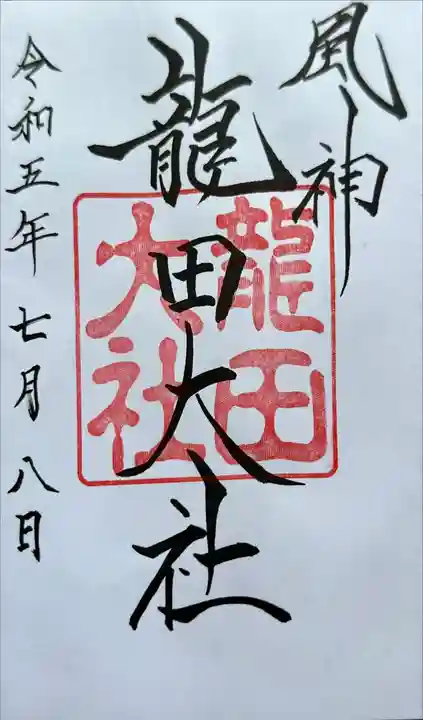 風神
龍田大社
龍田
大社
令和五年七月八日